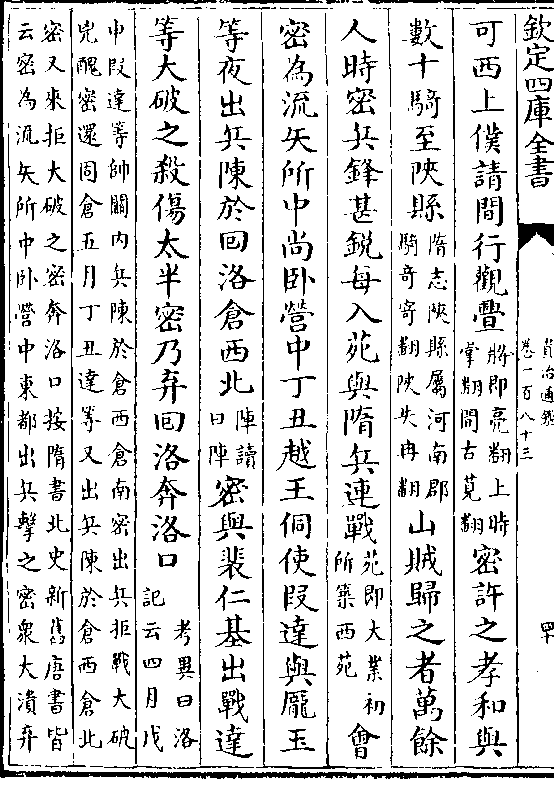 欽定四庫全書
資治通鑑
卷一百八十三
四十
可西上僕請間行觀釁將即亮翻上時掌翻間古莧翻密許之孝和與
數十騎至陝縣隋志陝縣屬河南郡騎奇寄翻陝失冉翻山賊歸之者萬餘
人時密兵鋒甚鋭每入苑與隋兵連戰苑即大業初所築西苑會
密為流矢所中尚卧營中丁丑越王侗使段達與龎玉
等夜出兵陳於回洛倉西北陣讀曰陣密與裴仁基出戰達
等大破之殺傷太半密乃弃回洛奔洛口考異曰洛記云四月戊
申段達等帥關内兵陳於倉西倉南密出兵拒戰大破
兇醜密還固倉五月丁丑達等又出兵陳於倉西倉北
密又來拒大破之密奔洛口按隋書北史新舊唐書皆
云密為流矢所中卧營中東都出兵擊之密衆大潰弃